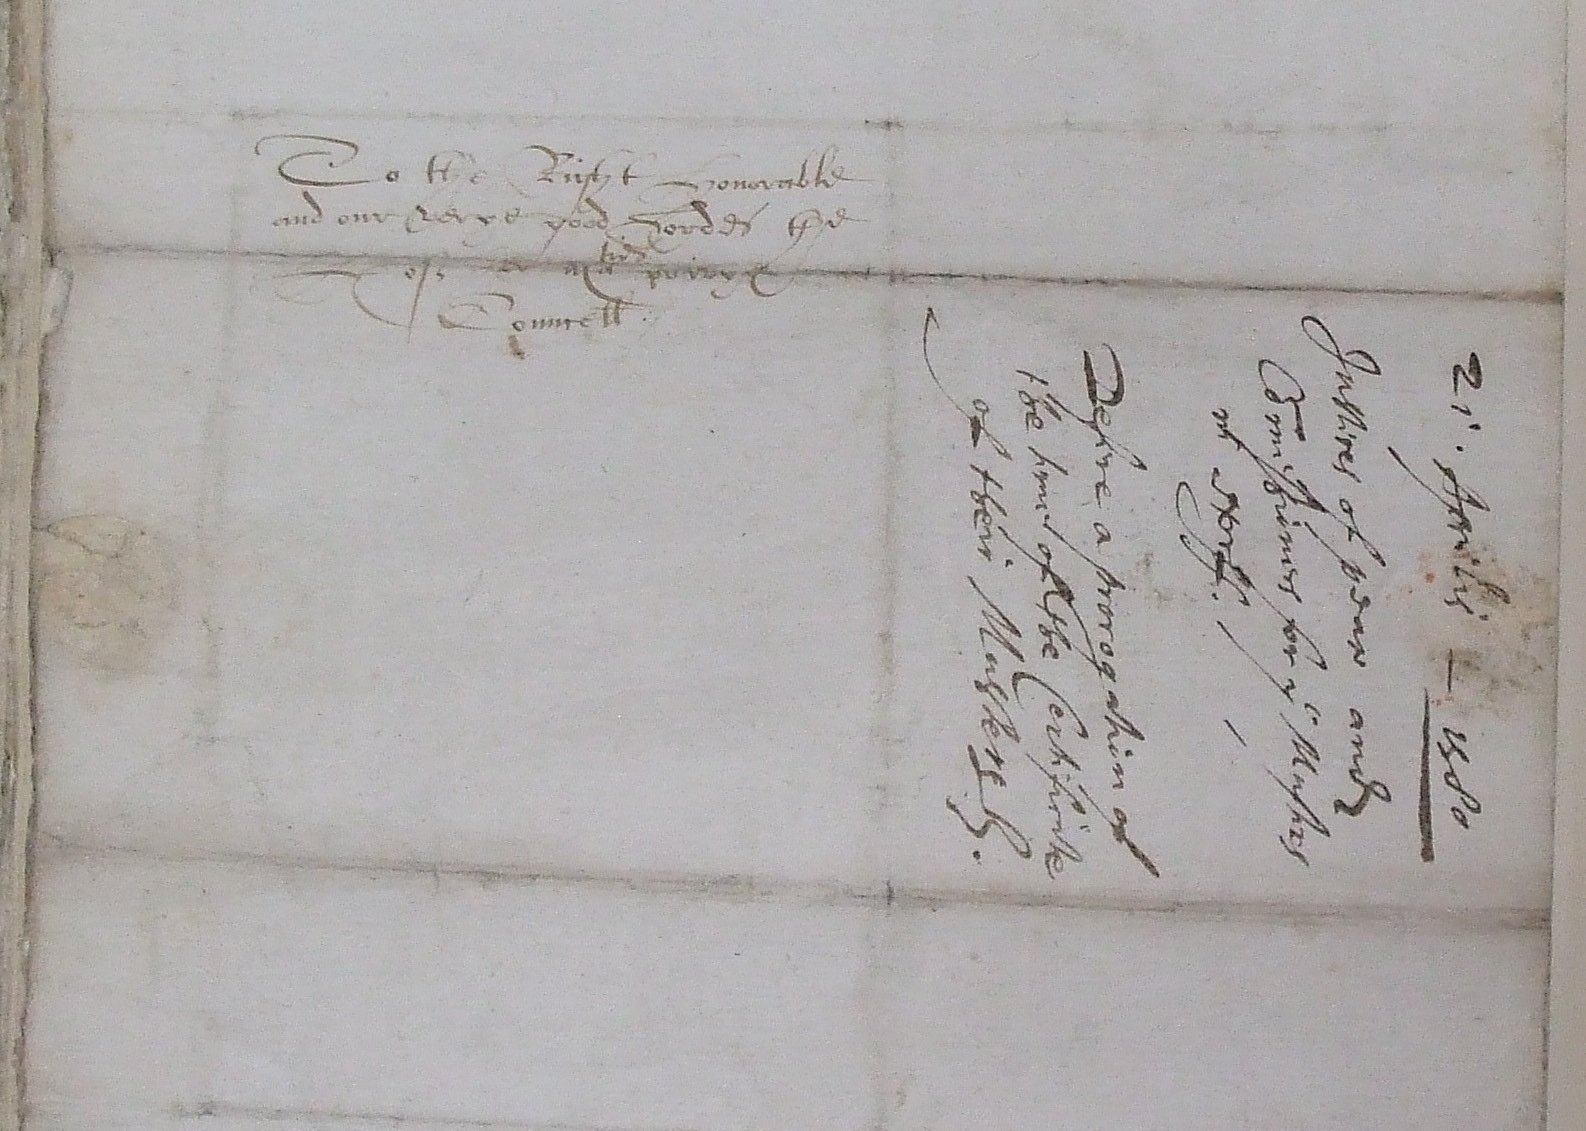 To the Right honorable
and our verye good Lordes the
of her Ma:ties privye
Councell.
21. Aprilis — 1580
Justices of peax and
Comissioners for ye Musters
in Norff.
Desire a prorogation of
the time of the Certificate
of their Musters.